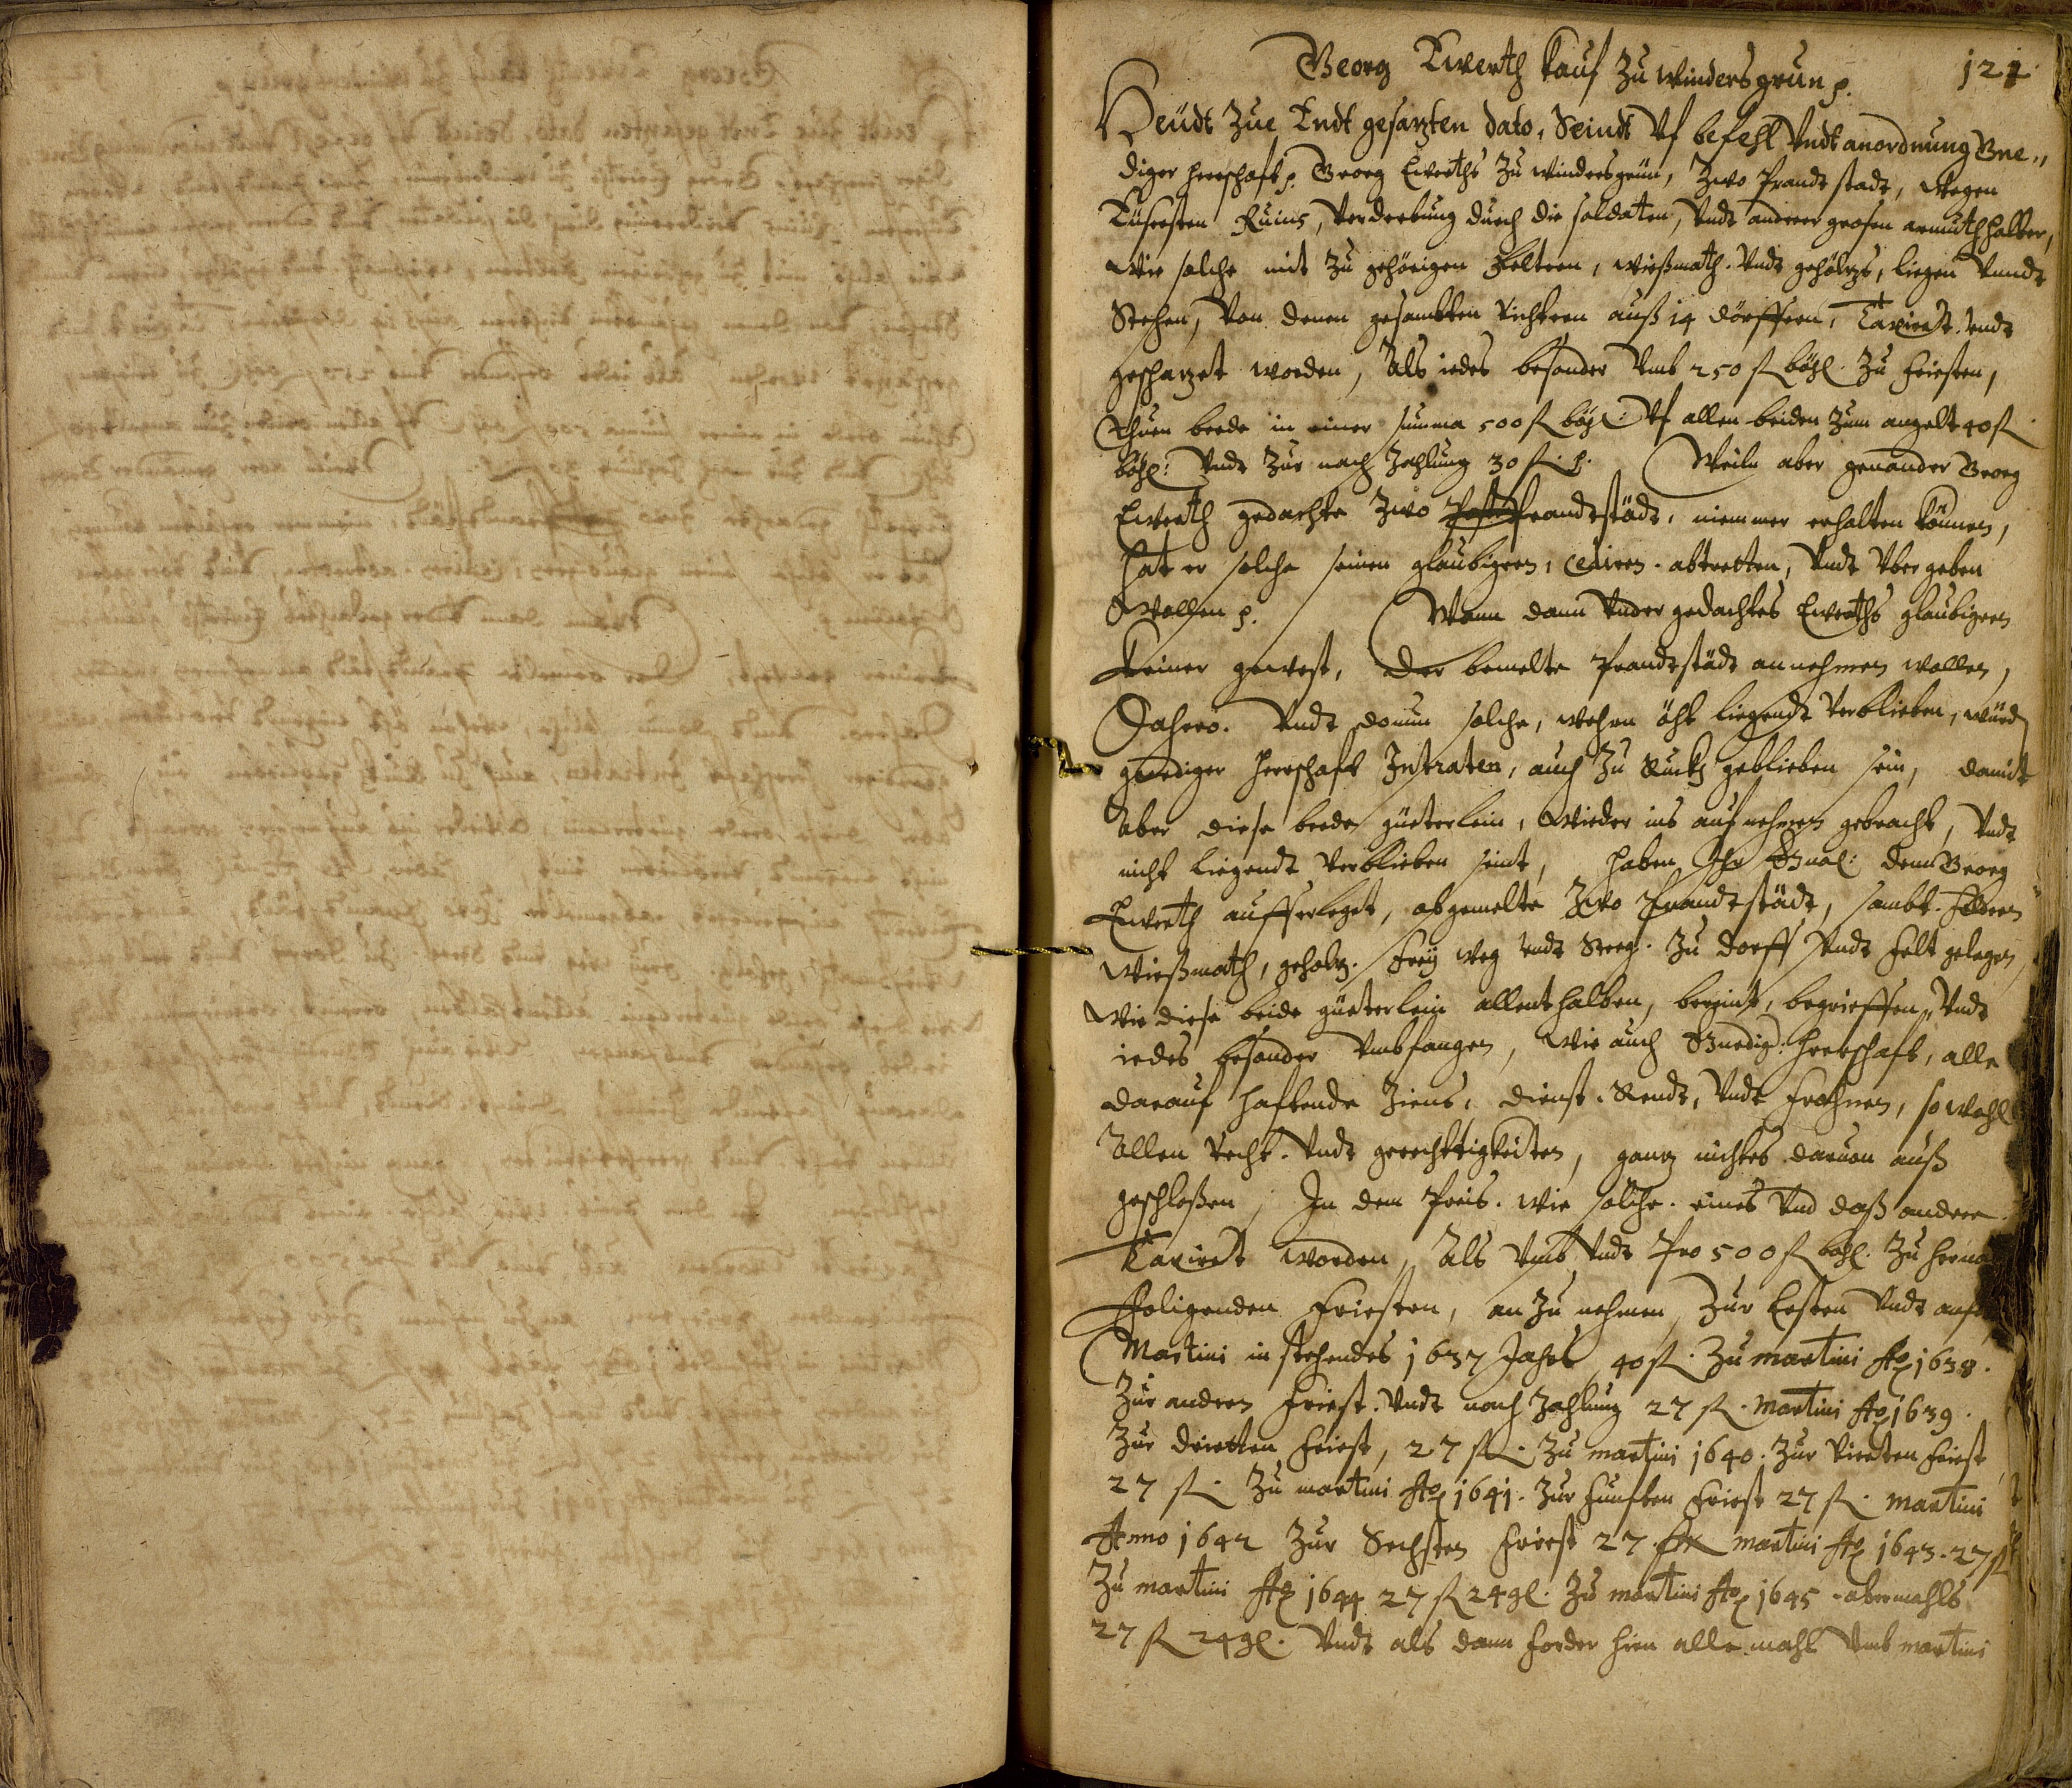 Georg Ewerth Kauf Zu Windersgrun p. 121
Heüdt Zue Endt gesazten dato, Seindt Vf befehl Vndt anordnung Gne„
diger Herrschaft p. Georg Ewerths Zu Windersgrün, Zwo Prandt stadt, Wegen
Eüsersten Ruins, Verderbung durch die soldaten, Vndt anderer grosen armuth halber,
Wie solche mit Zu gehörigen Feltern, Wießmath. Vndt gehöltz, liegen Vnndt
Stehen, Von denen gesambten Richtern auß 14 dörffern, Taxiret. Vndt
geschatzet worden, Als iedes besonder Vmb 250 fl böhl. Zu Friesten,
Thuen beede in einer summa 500 fl böhl: Vf allen beiden Zum angelt 40 fl
böhl: Vndt Zur nach Zahlung 30 fl. p. Weiln aber genander Georg
Ewerth gedachte Zwo Prandtstädt, niemmer erhalten können,
hat er solche seinen glaubigern, Cediren. abtretten, Vndt Vber geben
Wollen p. Wann dann Vnder gedachtes Ewerths glaubigern
Keiner gewest, der bemelte Prandtstädt annehmen wollen,
Dahero. Vndt donun solche, Wehren öht liegendt Verblieben, würd
gnediger Herrschaft Intraten, auch Zu Ruckh geblieben sein, damit
Aber diese beede güeterlein, Wieder ins aufnehmen gebracht, Vndt
nicht liegendt Verblieben seint, haben Ihr Gnal: dem Georg
Ewerth aufferleget, obgemelte Zwo Prandtstädt, sambt. Feldern
Wießmath, geholtz. Frey Weg Vndt Steeg. Zu dorff Vndt Felt gelegen,
Wie diese beide güeterlein allenthalben, bereint, begrieffen, Vndt
iedes besonder Vmbfangen, Wie auch Gnedig: Herrschaft, alle
darauf haftende Ziens, dienst. Rendt, Vndt Frohnen, so wohl
Allen Recht. Vndt gerechttigkeiten, gantz nichtes daruon auß
geschloßen, In dem Preis. wie solche. eines Vnd daß andere.
Taxiret worden, Als Vmb Vndt Pro 500 fl böhl. Zu herna
Folgenden Friesten, an Zu nehmen, Zur Ersten Vndt auf
Martini in stehendes 1637 Jahrs 40 fl. Zu martini Ao 1638.
Zur andern Friest. Vndt nach Zahlung 27 fl. Martini Ao 1639.
Zur dritten Friest, 27 fl. Zu martini 1640. Zur Vierten Friest
27 fl. Zu martini Ao 1641. Zur Funften Friest 27 fl. martini
Anno 1642 Zur Sechsten Friest 27 fl martini Ao 1643. 27 fl
Zu martini Ao 1644 27 fl 24 gl. Zu martini Ao 1645 abermahls
27 fl 24 gl. Vndt als dann forder hien alle mahl Vmb martini